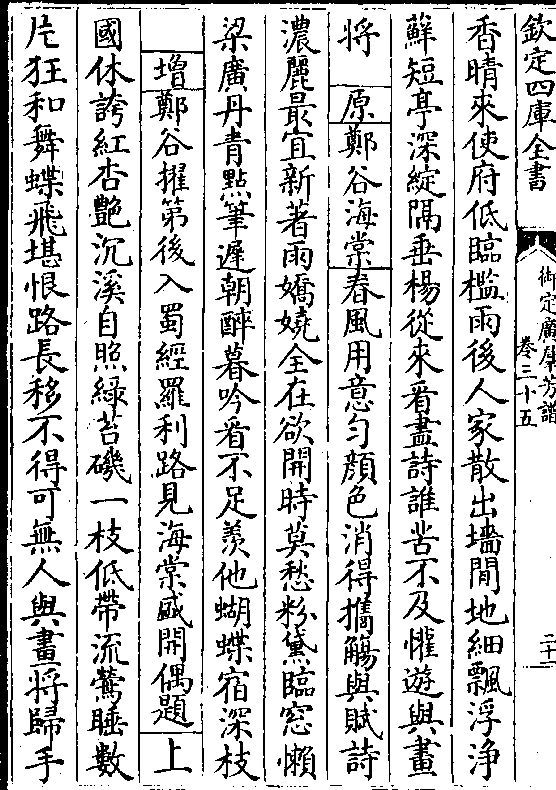 欽定四庫全書
御定廣羣芳譜
卷三十五
二十一
香晴來使府低臨檻雨後人家散出墻閒地細飄浮浄
蘚短亭深綻隔垂楊從來看盡詩誰苦不及懽遊與畫
將　原鄭谷海棠春風用意勻顔色消得攜觴與賦詩
濃麗最宜新著雨嬌嬈全在欲開時莫愁粉黛臨窓懶
梁廣丹青㸃筆遲朝醉暮吟看不足羨他蝴蝶宿深枝
增鄭谷擢第後入蜀經羅利路見海棠盛開偶題　上
國休誇紅杏艷沉溪自照緑苔磯一枝低帶流鶯睡數
片狂和舞蝶飛堪恨路長移不得可無人與畫將歸手